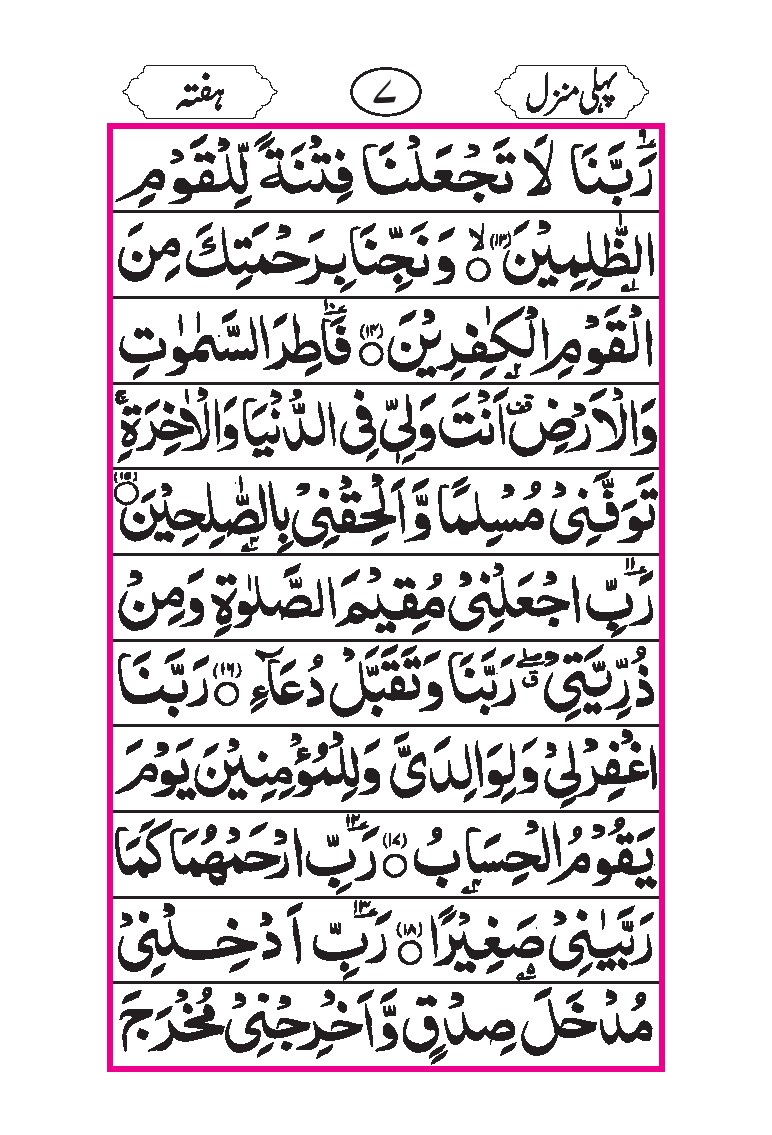 پہلی منزل ۷ ہفتہ
رَبَّنَا لَا تَجْعَلْنَا فِتْنَةً لِّلْقَوْمِ
الظّٰلِمِيْنَ ۙ﴿۱۳﴾ وَنَجِّنَا بِرَحْمَتِكَ مِنَ
الْقَوْمِ الْكٰفِرِيْنَ ﴿۱۴﴾ فَاطِرَ السَّمٰوٰتِ
وَالْاَرْضِ ۟ اَنْتَ وَلِيّٖ فِى الدُّنْيَا وَالْاٰخِرَةِ ۚ
تَوَفَّنِىْ مُسْلِمًا وَّاَلْحِقْنِىْ بِالصّٰلِحِيْنَ ﴿۱۵﴾
رَبِّ اجْعَلْنِىْ مُقِيْمَ الصَّلٰوةِ وَمِنْ
ذُرِّيَّتِىْ ۖق رَبَّنَا وَتَقَبَّلْ دُعَآءِ ﴿۱۶﴾ رَبَّنَا
اغْفِرْلِىْ وَلِوَالِدَىَّ وَلِلْمُؤْمِنِيْنَ يَوْمَ
يَقُوْمُ الْحِسَابُ ﴿۱۷﴾ رَبِّ ارْحَمْهُمَا كَمَا
رَبَّيٰنِىْ صَغِيْرًا ﴿۱۸﴾ رَبِّ اَدْخِلْنِىْ
مُدْخَلَ صِدْقٍ وَّاَخْرِجْنِىْ مُخْرَجَ